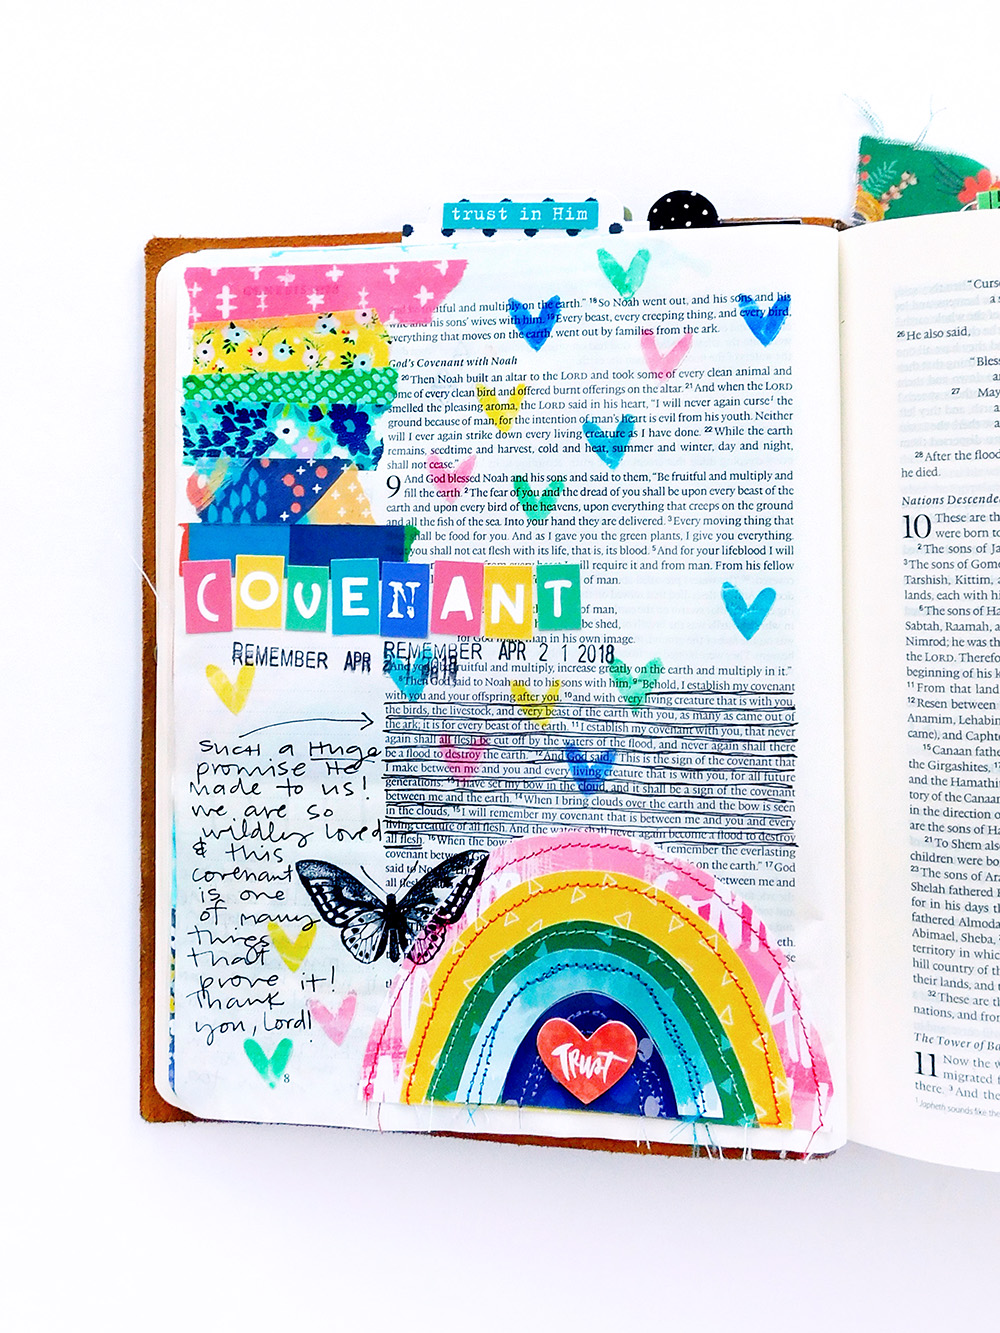 trust in Him
GENESIS
fruitful and multiply on the earth.” 18 So Noah went out, and his sons and his
wife and his sons’ wives with him. 19 Every beast, every creeping thing, and every bird,
everything that moves on the earth, went out by families from the ark.
God’s Covenant with Noah
20 Then Noah built an altar to the LORD and took some of every clean animal and
some of every clean bird and offered burnt offerings on the altar. 21 And when the LORD
smelled the pleasing aroma, the LORD said in his heart, “I will never again curse the
ground because of man, for the intention of man’s heart is evil from his youth. Neither
will I ever again strike down every living creature as I have done. 22 While the earth
remains, seedtime and harvest, cold and heat, summer and winter, day and night,
shall not cease.”
9 And God blessed Noah and his sons and said to them, “Be fruitful and multiply and
fill the earth. 2 The fear of you and the dread of you shall be upon every beast of the
earth and upon every bird of the heavens, upon everything that creeps on the ground
and all the fish of the sea. Into your hand they are delivered. 3 Every moving thing that
shall be food for you. And as I gave you the green plants, I give you everything.
But you shall not eat flesh with its life, that is, its blood. 5 And for your lifeblood I will
from every beast I will require it and from man. From his fellow
of man.
COVENANT
of man,
be shed,
for God man in his own image.
REMEMBER APR 2 1 2018
REMEMBER APR 2 1 2018
And you, fruitful and multiply, increase greatly on the earth and multiply in it.”
8 Then God said to Noah and to his sons with him, 9 “Behold, I establish my covenant
with you and your offspring after you, 10 and with every living creature that is with you,
the birds, the livestock, and every beast of the earth with you, as many as came out of
the ark; it is for every beast of the earth. 11 I establish my covenant with you, that never
again shall all flesh be cut off by the waters of the flood, and never again shall there
be a flood to destroy the earth.” 12 And God said, “This is the sign of the covenant that
I make between me and you and every living creature that is with you, for all future
generations: 13 I have set my bow in the cloud, and it shall be a sign of the covenant
between me and the earth. 14 When I bring clouds over the earth and the bow is seen
in the clouds, 15 I will remember my covenant that is between me and you and every
living creature of all flesh. And the waters shall never again become a flood to destroy
all flesh. 16 When the bow remember the everlasting
covenant between on the earth.” 17 God
said to Noah, between me and
all flesh
eth.
Such a Huge
promise He
made to us!
we are so
wildly loved
& this
covenant
is one
of many
things
that
prove it!
Thank
you, Lord!
TRUST
8
“Curse
a s
26 He also said,
“Bless
an
27 May
a
28 After the flood
he died.
Nations Descende
10 These are th
were born to
2 The sons of Ja
3 The sons of Gome
Tarshish, Kittim, a
lands, each with hi
6 The sons of Ha
Sabtah, Raamah, a
Nimrod; he was th
the LORD. Therefo
beginning of his k
11 From that land
12 Resen between
Anamim, Lehabim
came), and Caphto
15 Canaan fathe
the Girgashites, 17
and the Hamathit
tory of the Canaan
in the direction o
are the sons of Ha
21 To Shem also
children were bo
23 The sons of Ara
Shelah fathered
for in his days th
fathered Almoda
Abimael, Sheba,
territory in whic
hill country of th
their lands, and t
32 These are th
nations, and from
The Tower of Ba
11 Now the w
migrated f
there. 3 And the
1 Japheth sounds like the